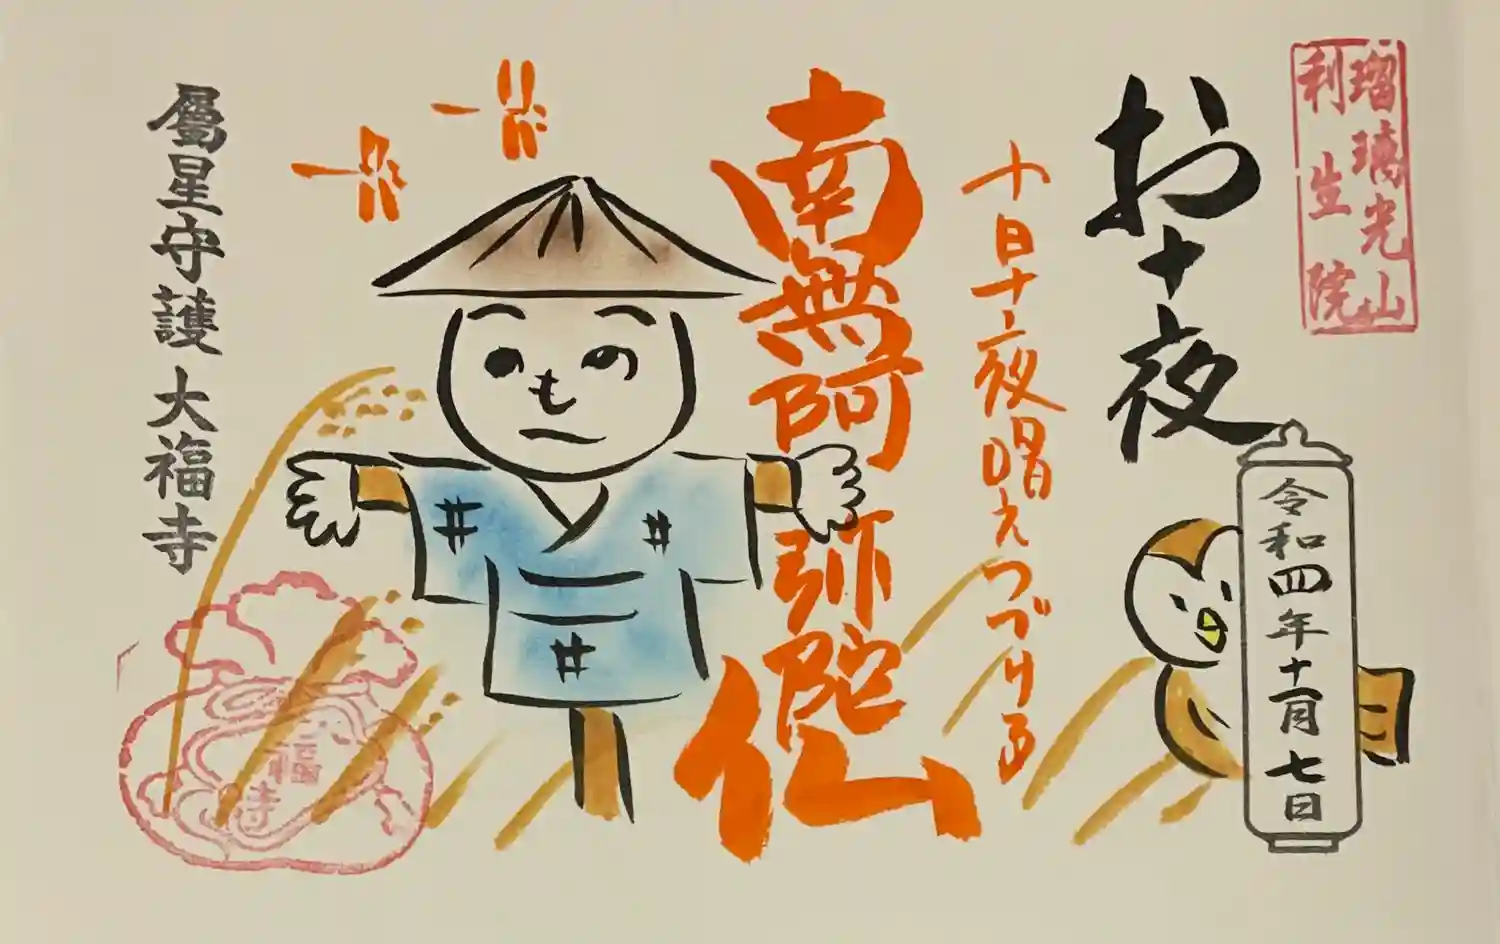 瑠璃光山
利生院
お十夜
令和四年十一月七日
十日十夜唱えつづける
南無阿弥陀仏
屬星守護大福寺
福寺